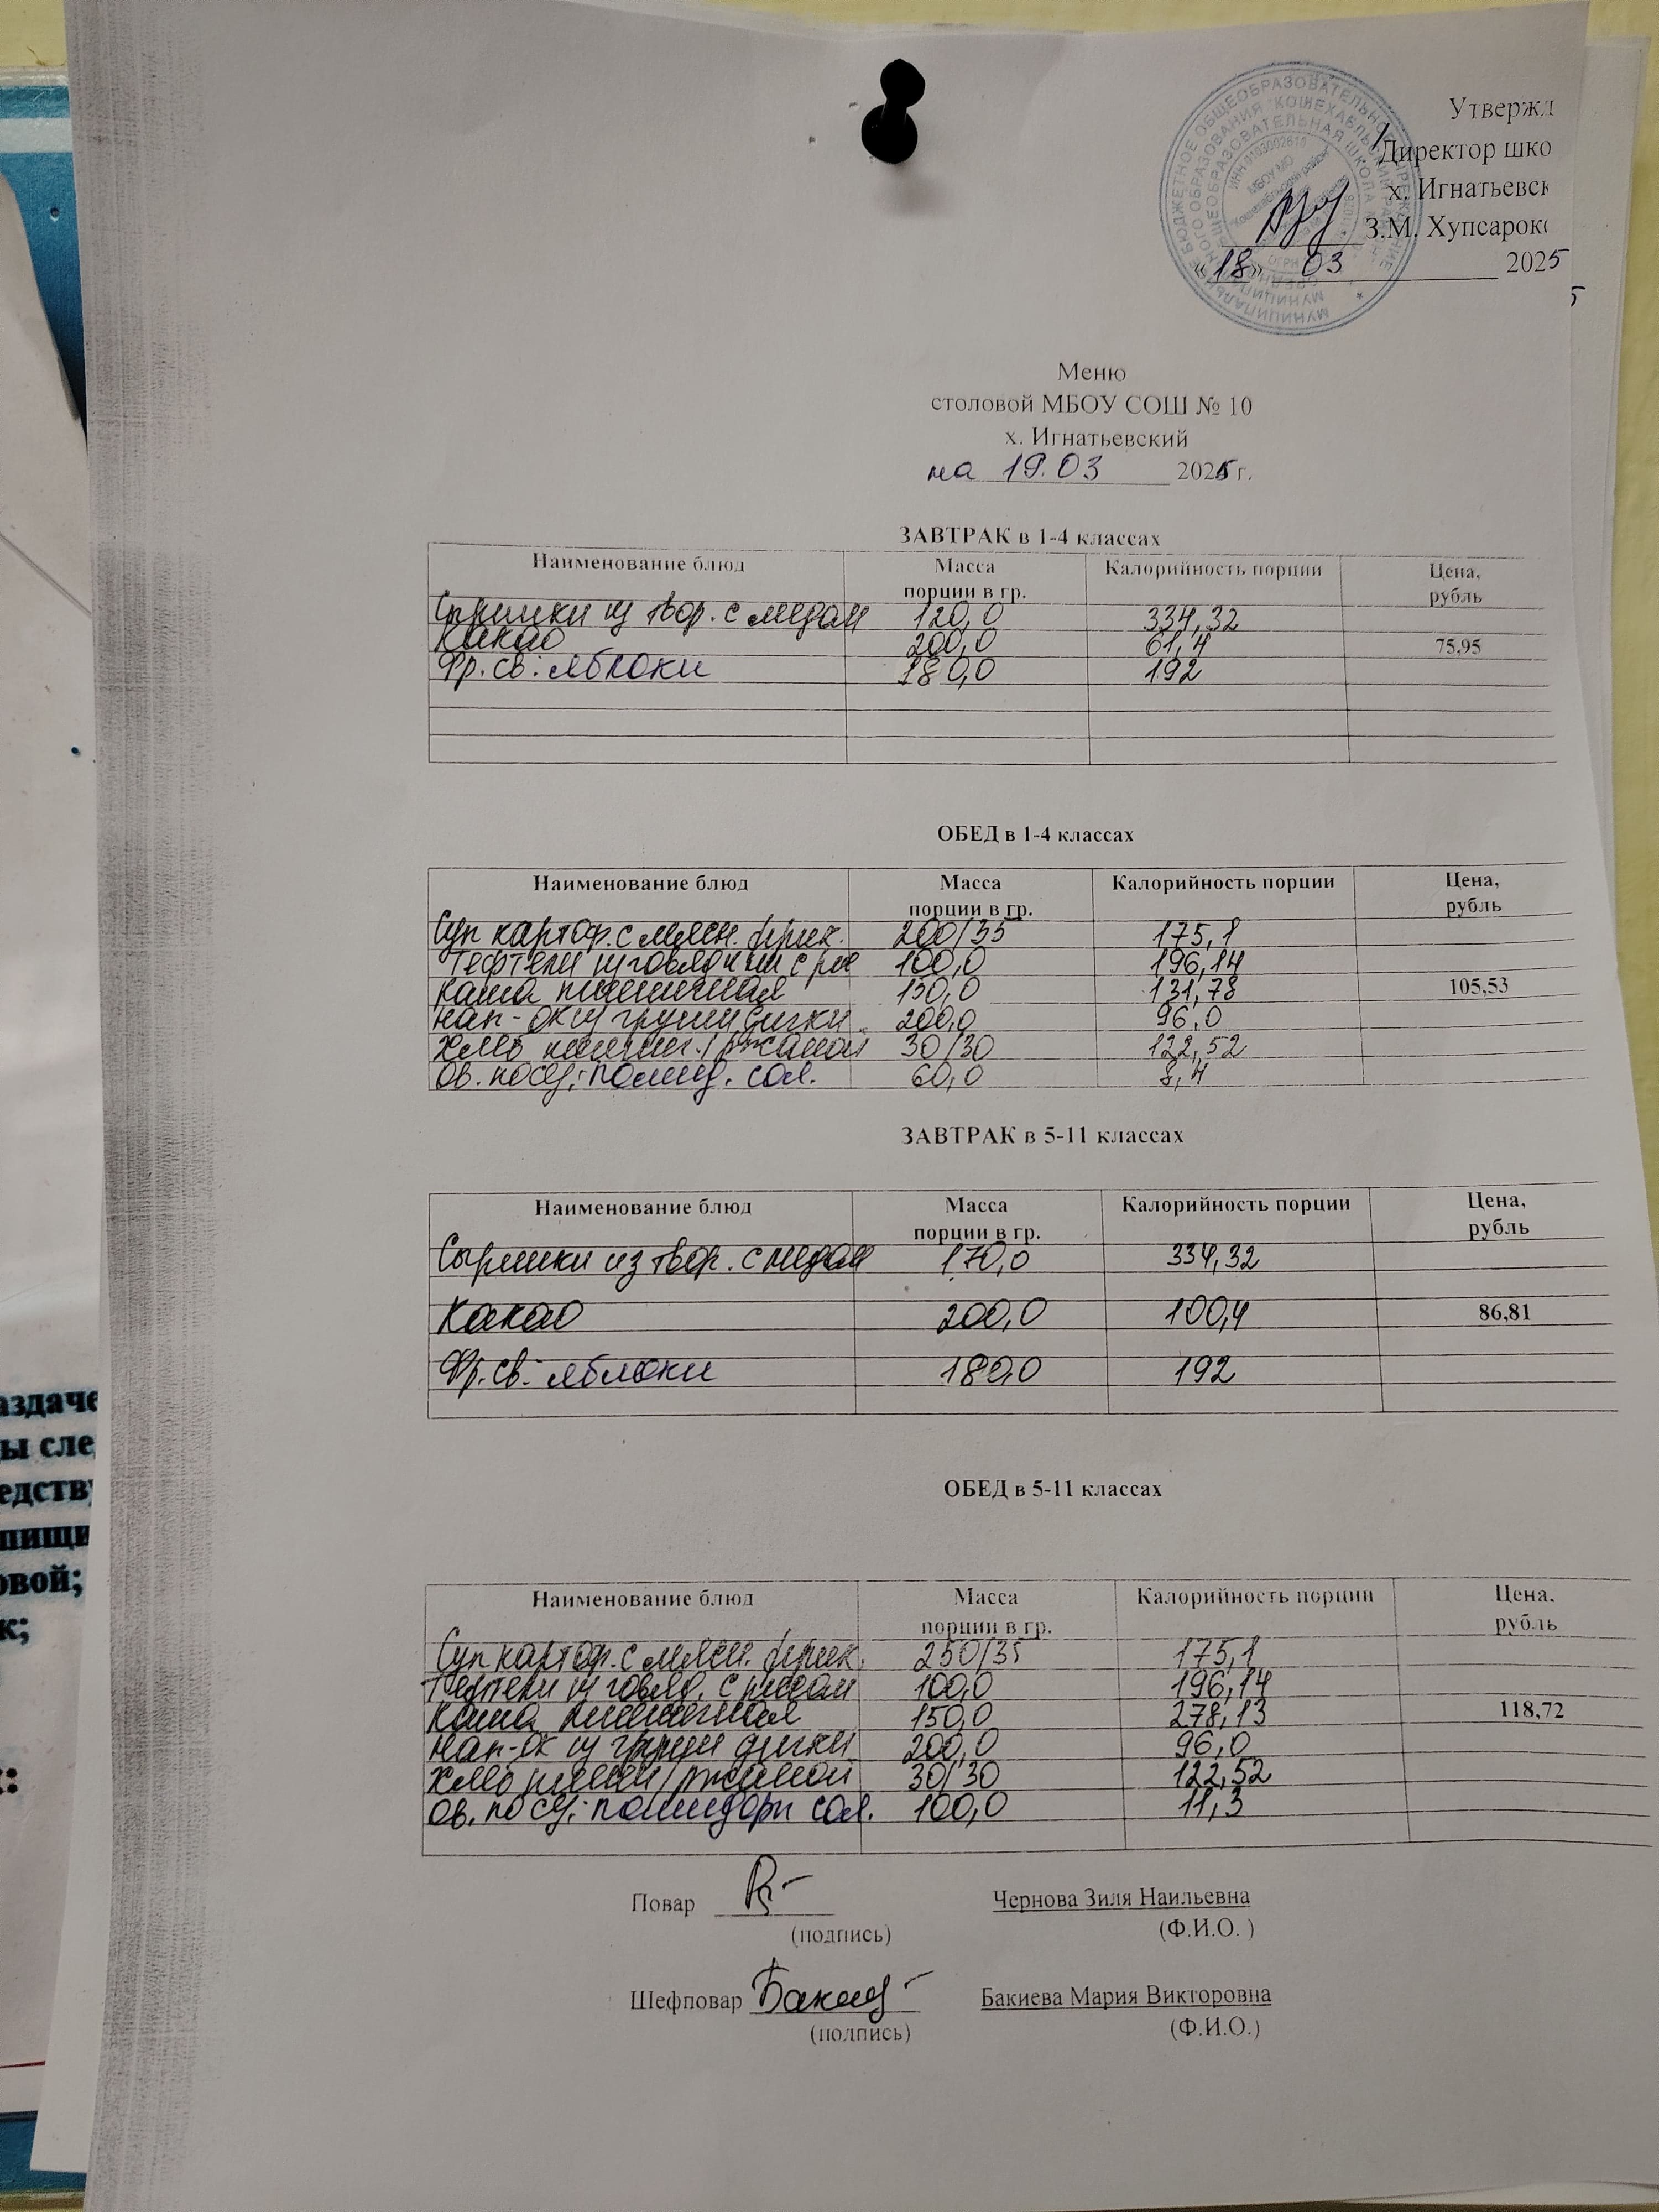 Утвержд
Директор шко
х. Игнатьевск
З.М. Хупсарок
«18» 03 2025
Меню
столовой МБОУ СОШ № 10
х. Игнатьевский
на 19.03 2025 г.
ЗАВТРАК в 1-4 классах
Наименование блюд Масса порции в гр. Калорийность порции Цена, рубль
Сырники из твор. с медом 120,0 334,32
Какао 200,0 61,4 75,95
Фр. св: яблоки 180,0 192
ОБЕД в 1-4 классах
Наименование блюд Масса порции в гр. Калорийность порции Цена, рубль
Суп картоф. с мясн. фрик. 200/35 175,1
Тефтели из говядины с рис 100,0 196,14
Каша пшеничная 150,0 131,78 105,53
Нап-ок из груши дички 200,0 96,0
Хлеб пшен. / ржаной 30/30 122,52
Ов. посез: помид. сол. 60,0 8,4
ЗАВТРАК в 5-11 классах
Наименование блюд Масса порции в гр. Калорийность порции Цена, рубль
Сырники из твор. с медом 170,0 334,32
Какао 200,0 100,4 86,81
Фр. св: яблоки 180,0 192
ОБЕД в 5-11 классах
Наименование блюд Масса порции в гр. Калорийность порции Цена, рубль
Суп картоф. с мясн. фрик. 250/35 175,1
Тефтели из говяд. с рисом 100,0 196,14
Каша пшеничная 150,0 278,13 118,72
Нап-ок из груши дички 200,0 96,0
Хлеб пшен / ржаной 30/30 122,52
Ов. по сез: помидоры сол. 100,0 11,3
Повар Чернова Зиля Наильевна
(подпись) (Ф.И.О. )
Шефповар Бакиев Бакиева Мария Викторовна
(подпись) (Ф.И.О.)
аздаче
ы сле
едств
пищи
овой;
к;
: